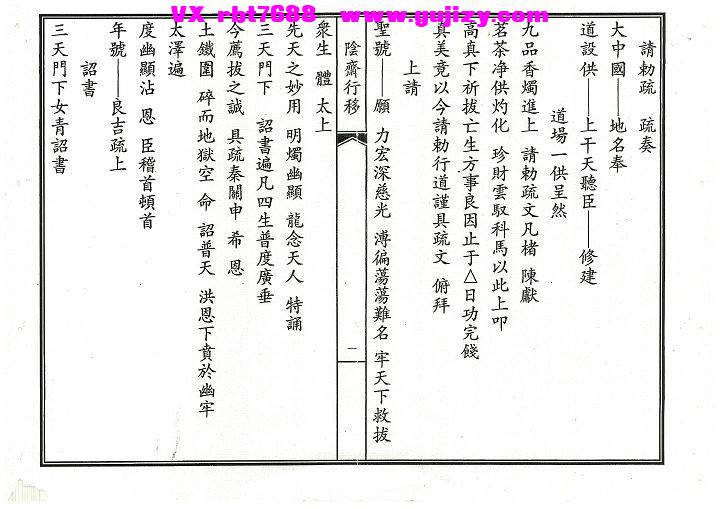 VX rbt7688 www.gujizy.com
請勅疏 疏奏
大中國——地名奉
道設供——上干天聽臣——修建
道場一供呈然
九品香燭進上 請勅疏文凡楮 陳獻
茗茶净供灼化 珍財雲馭科馬以此上叩
高真下祈拔亡生方事良因止于△日功完餞
真美竟以今請勅行道謹具疏文 俯拜
上請
聖號——願 力宏深慈光 溥徧蕩蕩難名 牢天下救拔
陰齋行移
一
衆生 體 太上
先天之妙用 明燭幽顯 龍念天人 特誦
三天門下 詔書遍凡四生普度廣垂
今薦拔之誠 具疏奏關申 希 恩
土鐵圍 碎而地獄空 命 詔普天 洪恩下賁於幽牢
太澤遍
度幽顯沾 恩 臣稽首頓首
年號——良吉疏上
詔書
三天門下女青詔書